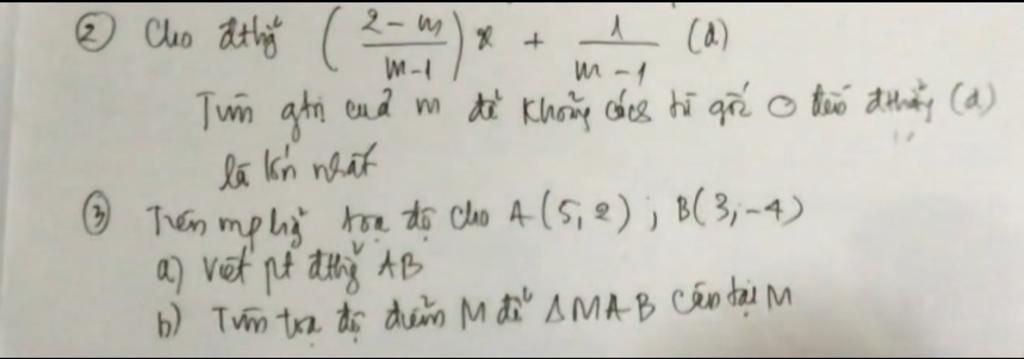 ② Cho đthg̉ (2-m/m-1)x + 1/m-1 (d)
Tìm gtrị của m để khoảng cách từ gốc O đến đthẳng (d)
là lớn nhất
③ Trên mphg̉ tọa độ cho A(5,2) ; B(3,-4)
a) Viết pt đthg̉ AB
b) Tìm tọa độ điểm M để ΔMAB cân tại M